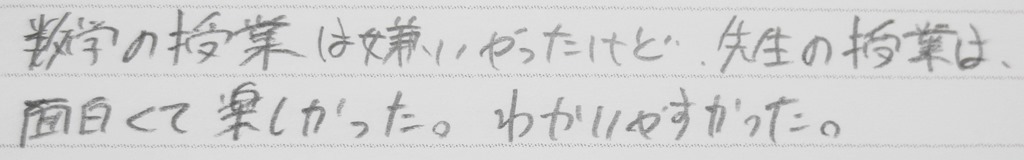 数学の授業は嫌いやったけど、先生の授業は、
面白くて楽しかった。わかりやすかった。